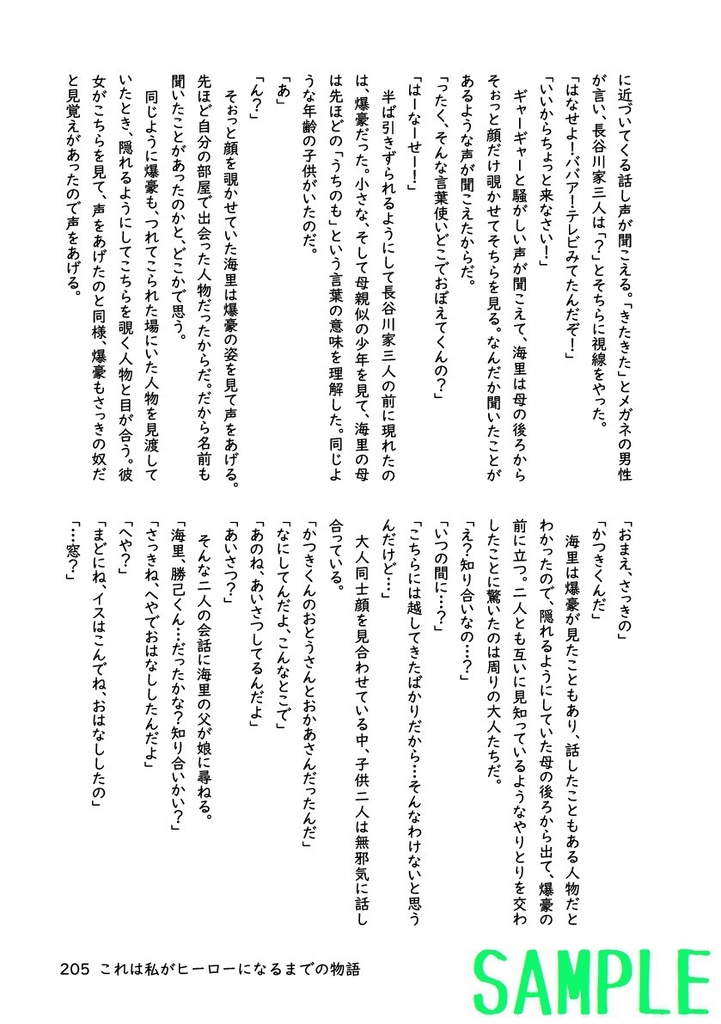 に近づいてくる話し声が聞こえる。「きたきた」とメガネの男性
が言い、長谷川家三人は「？」とそちらに視線をやった。
「はなせよ！ババア！テレビみてたんだぞ！」
「いいからちょっと来なさい！」
ギャーギャーと騒がしい声が聞こえて、海里は母の後ろから
そぉっと顔だけ覗かせてそちらを見る。なんだか聞いたことが
あるような声が聞こえたからだ。
「ったく、そんな言葉使いどこでおぼえてくんの？」
「はーなーせー！」
半ば引きずられるようにして長谷川家三人の前に現れたの
は、爆豪だった。小さな、そして母親似の少年を見て、海里の母
は先ほどの「うちのも」という言葉の意味を理解した。同じよ
うな年齢の子供がいたのだ。
「あ」
「ん？」
そぉっと顔を覗かせていた海里は爆豪の姿を見て声をあげる。
先ほど自分の部屋で出会った人物だったからだ。だから名前も
聞いたことがあったのかと、どこかで思う。
同じように爆豪も、つれてこられた場にいた人物を見渡して
いたとき、隠れるようにしてこちらを覗く人物と目が合う。彼
女がこちらを見て、声をあげたのと同様、爆豪もさっきの奴だ
と見覚えがあったので声をあげる。
「おまえ、さっきの」
「かつきくんだ」
海里は爆豪が見たこともあり、話したこともある人物だと
わかったので、隠れるようにしていた母の後ろから出て、爆豪の
前に立つ。二人とも互いに見知っているようなやりとりを交わ
したことに驚いたのは周りの大人たちだ。
「え？知り合いなの…？」
「いつの間に…？」
「こちらには越してきたばかりだから…そんなわけないと思う
んだけど…」
大人同士顔を見合わせている中、子供二人は無邪気に話し
合っている。
「かつきくんのおとうさんとおかあさんだったんだ」
「なにしてんだよ、こんなとこで」
「あのね、あいさつしてるんだよ」
「あいさつ？」
そんな二人の会話に海里の父が娘に尋ねる。
「海里、勝己くん…だったかな？知り合いかい？」
「さっきね、へやでおはなししたんだよ」
「へや？」
「まどにね、イスはこんでね、おはなししたの」
「…窓？」
205 これは私がヒーローになるまでの物語
SAMPLE